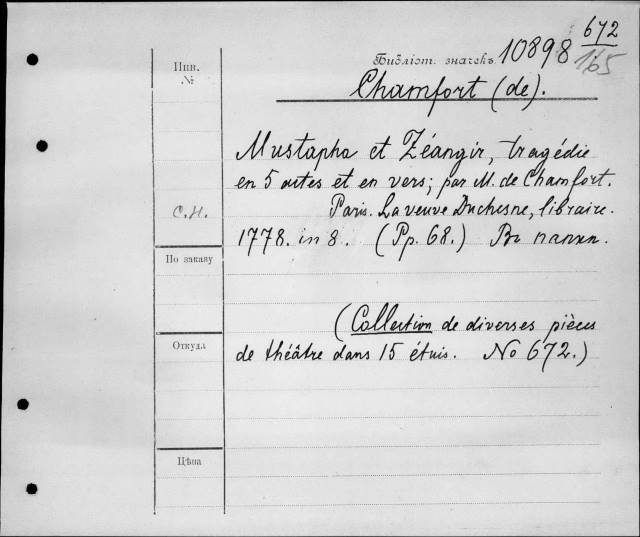 672
Библіот. значекъ 10898 165
Инв. №
Chamfort (de).
Mustapha et Zéangir, tragédie
en 5 actes et en vers; par M. de Chamfort.
С.Н. Paris. La veuve Duchesne, libraire.
1778. in 8. (Pp. 68.) Въ папкѣ.
По заказу
(Collection de diverses pièces
Откуда de théâtre dans 15 étuis. No 672.)
Цѣна